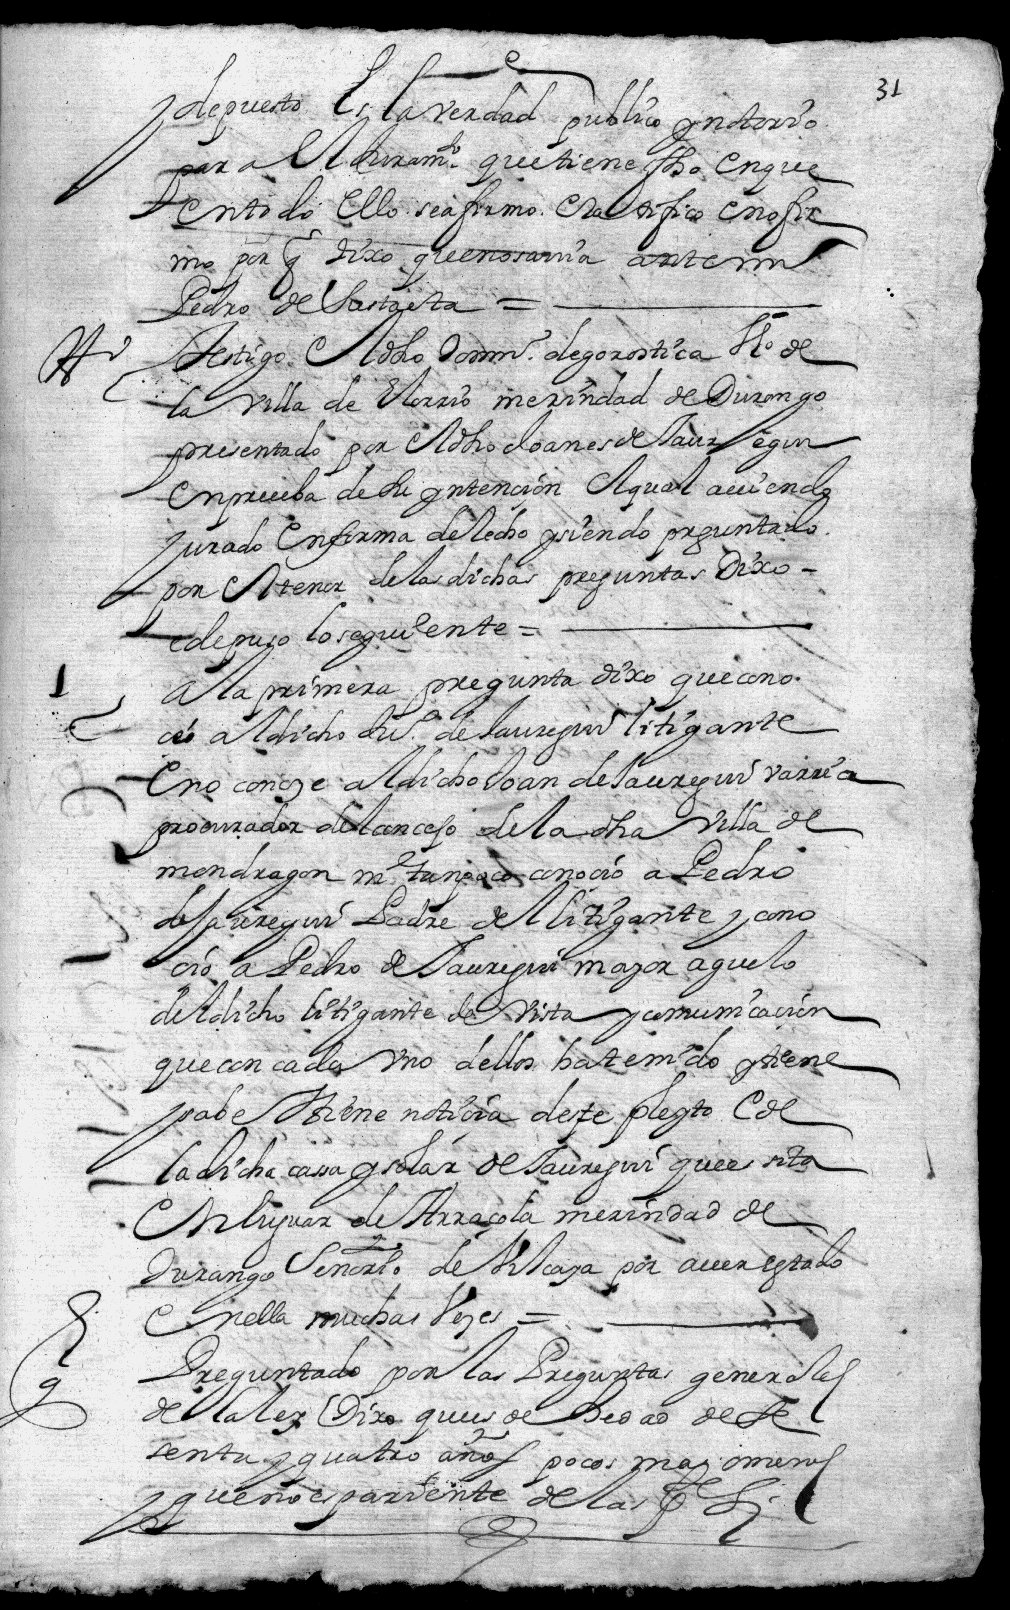 31
depuesto es la verdad publico y notorio
para el juramto que tiene fho en que
entrdo ello se afirmo e ratifico e no fir
mo por q dixo que no savia ante mi
Pedro de Sustaeta =
Testigo El dho domin de gorostica vo de
la villa de Elorrio merindad de Durango
presentado por el dho Joanes de Jauregui
en prueba de su yntencion el qual aviendo
jurado en forma de decho y siendo preguntado
por el tenor de las dichas preguntas Dixo
e depuso lo seguiente =
1
a la primera pregunta dixo que cono
cio al dicho Ju. de Jauregui litigante
e no conoze al dicho Joan de Jauregui varrica
procurador del concejo de la dha villa de
mondragon ni tanpoco conocio a Pedro
de Jauregui Padre del litigante y cono
cio a Pedro de Jauregui mayor aguelo
del dicho litigante de vista y comunicacion
que con cada uno dellos ha tenido y tiene
y sabe e tiene noticia deste pleyto e de
la dicha casa y solar de Jauregui que es sita
en lugar de Arraçola merindad de
Durango Señorio de Vizcaya por aver estado
en ella muchas vezes =
Preguntado por las Preguntas generales
de la ley Dixo que es de hedad de se
senta y quatro años pocos mas o menos
y que no es pariente de las